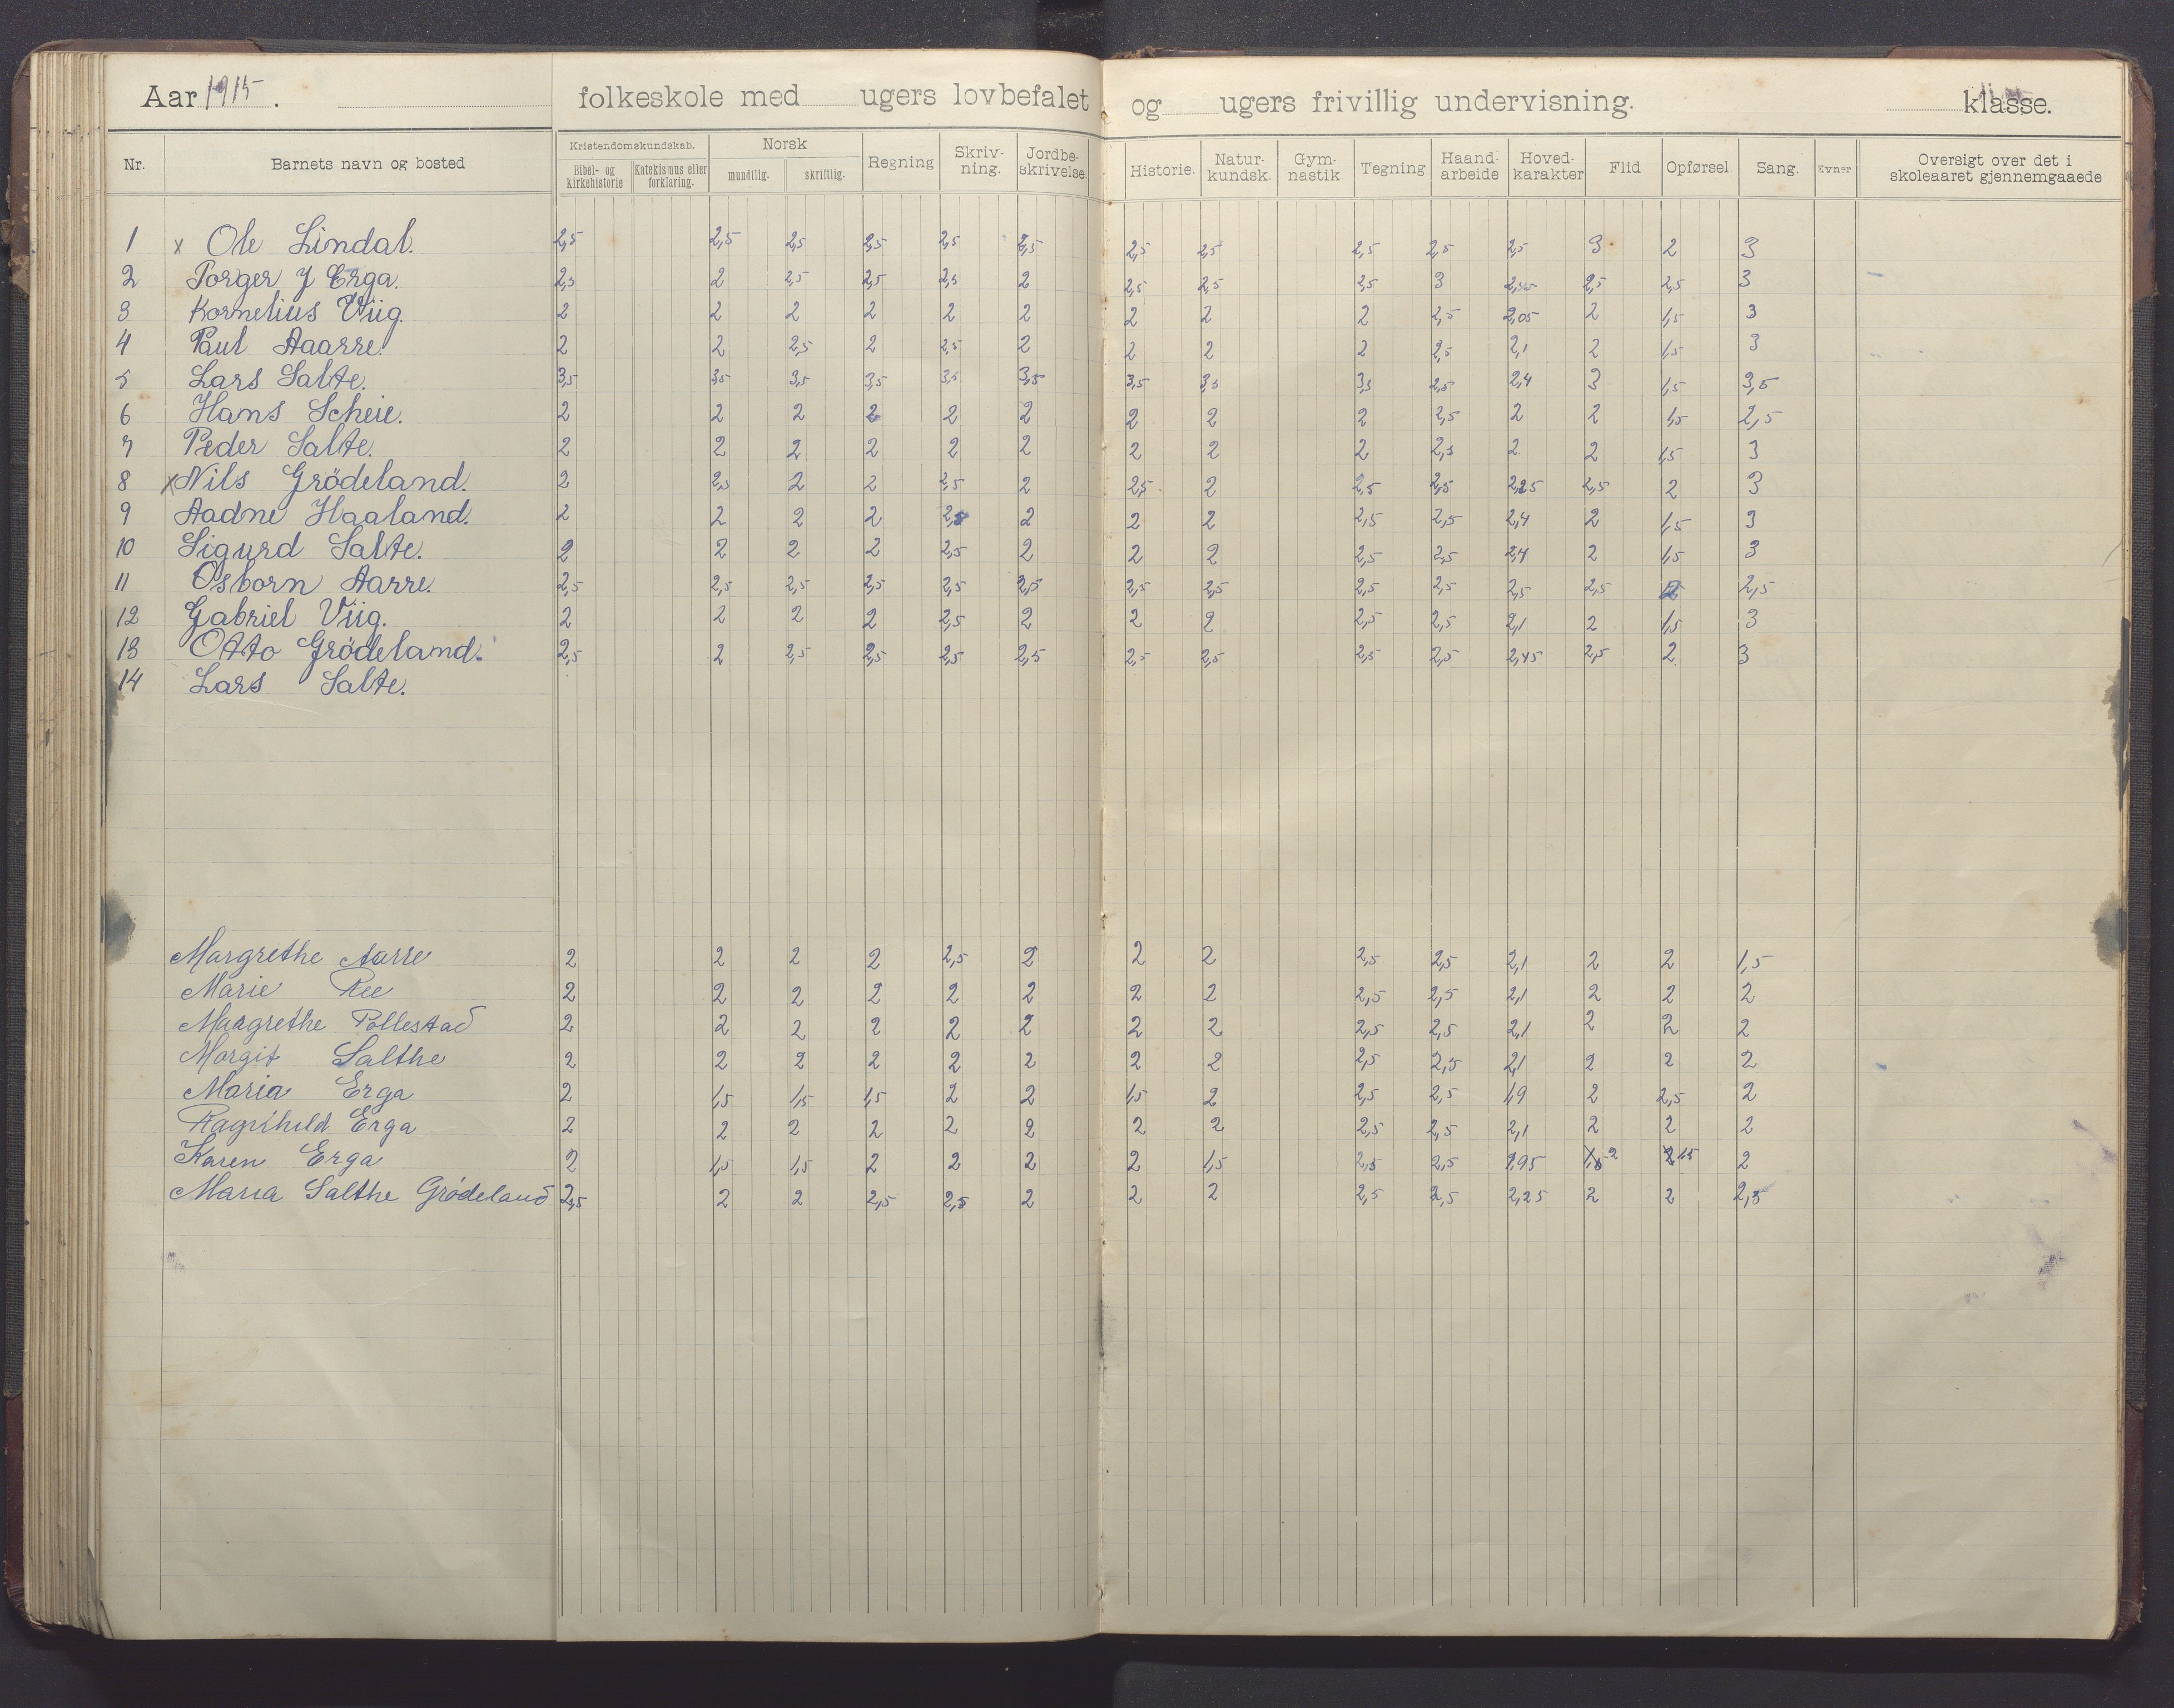 Aar 1915. folkeskole med ugers lovbefalet og ugers frivillig undervisning. klasse.
Nr. Barnets navn og bosted Kristendomskundskab. Bibel- og Kirkehistorie Katekismus eller forklaring. Norsk mundtlig. skriftlig. Regning Skriv-ning. Jordbe-skrivelse. Historie. Natur-kundsk. Gym-nastik Tegning Haand-arbeide Hoved-karakter Flid Opførsel Sang. Evner Oversigt over det i skoleaaret gjennemgaaede
1 x Ole Lindal. 2,5 2,5 2,5 2,5 2,5 2,5 2,5 2,5 2,5 2,5 2,5 3 2 3
2 Torger J Erga. 2,5 2 2,5 2,5 2,5 2 2,5 2,5 2,5 3 2,5 2,5 3
3 Kornelius Viig. 2 2 2 2 2 2 2 2 2 2,5 2,05 2 1,5 3
4 Paul Aaarre. 2 2 2,5 2 2,5 2 2 2 2 2,5 2,1 2 1,5 3
5 Lars Salte. 3,5 3,5 3,5 3,5 3,5 3,5 3,5 3,5 3,5 2,5 2,4 3 1,5 3,5
6 Hans Scheie. 2 2 2 2 2 2 2 2 2 2,5 2 2 1,5 2,5
7 Peder Salte. 2 2 2 2 2 2 2 2 2 2,5 2 2 1,5 3
8 x Nils Grödeland. 2 2,5 2 2 2,5 2 2,5 2 2,5 2,5 2,25 2,5 2 3
9 Aadne Haaland. 2 2 2 2 2,5 2 2 2 2,5 2,5 2,4 2 1,5 3
10 Sigurd Salte. 2 2 2 2 2,5 2 2 2 2,5 2,5 2,4 2 1,5 3
11 Osborn Aarre. 2,5 2,5 2,5 2,5 2,5 2,5 2,5 2,5 2,5 2,5 2,5 2,5 2 2,5
12 Gabriel Viig. 2 2 2 2 2,5 2 2 2 2,5 2,5 2,1 2 1,5 3
13 Otto Grödeland. 2,5 2 2,5 2,5 2,5 2,5 2,5 2,5 2,5 2,5 2,45 2,5 2 3
14 Lars Salte.
Margrethe Aarre 2 2 2 2 2,5 2 2 2 2,5 2,5 2,1 2 2 1,5
Marie Ree 2 2 2 2 2 2 2 2 2,5 2,5 2,1 2 2 2
Margrethe Pollestad 2 2 2 2 2 2 2 2 2,5 2,5 2,1 2 2 2
Margit Salthe 2 2 2 2 2 2 2 2 2,5 2,5 2,1 2 2 2
Maria Erga 2 1,5 1,5 1,5 2 2 1,5 2 2,5 2,5 1,9 2 2,5 2
Ragnhild Erga 2 2 2 2 2 2 2 2 2,5 2,5 2,1 2 2 2
Karen Erga 2 1,5 1,5 2 2 2 2 1,5 2,5 2,5 1,95 2 1,5 2
Maria Salthe Grödeland 2,5 2 2 2,5 2,5 2 2 2 2,5 2,5 2,25 2 2 2,5